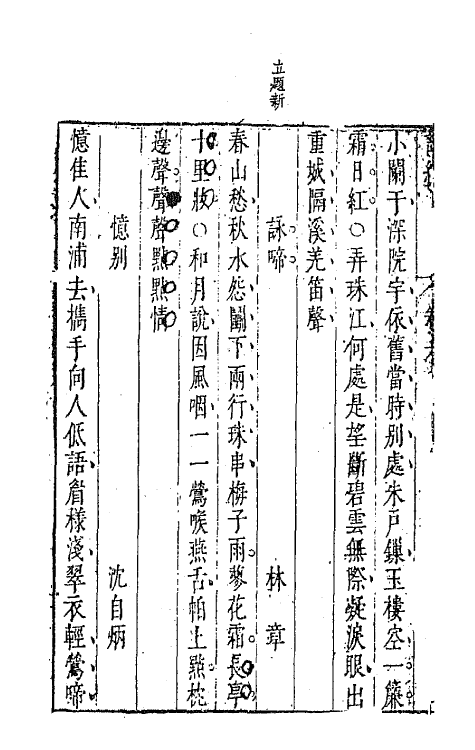 立題新
小闌干深院宇依舊當時别處朱戶鏁玉樓空一簾
霜日紅○弄珠江何處是望斷碧雲無際凝淚眼出
重城隔溪羌笛聲
詠啼 林章
春山愁秋水怨鬬下兩行珠串梅子雨蓼花霜長亭
十里妝○和月說因風咽一一鶯喉燕舌帕上㸃枕
邊聲聲聲㸃㸃情
憶别 沈自炳
憶佳人南浦去攜手向人低語眉樣淺翠衣輕鶯啼